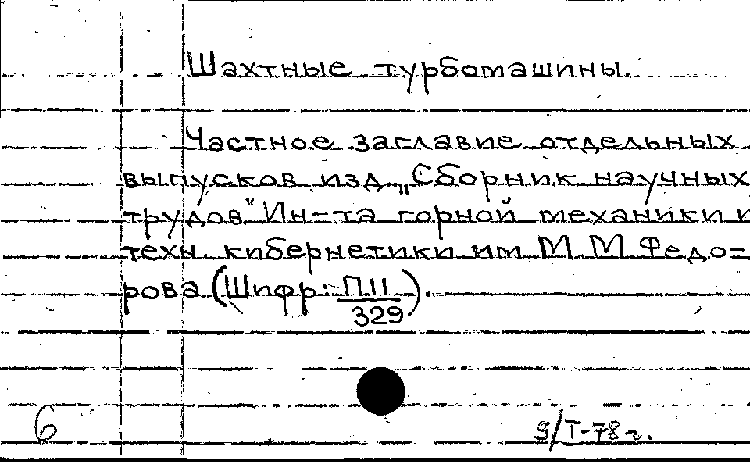 Шахтные турбомашины.
Частное заглавие отдельных
выпусков изд. „Сборник научных
трудов" Ин-та горной механики и
техн. кибернетики им М М Федо=
рова (Шифр: П11/329).
6 9/I-78 г.